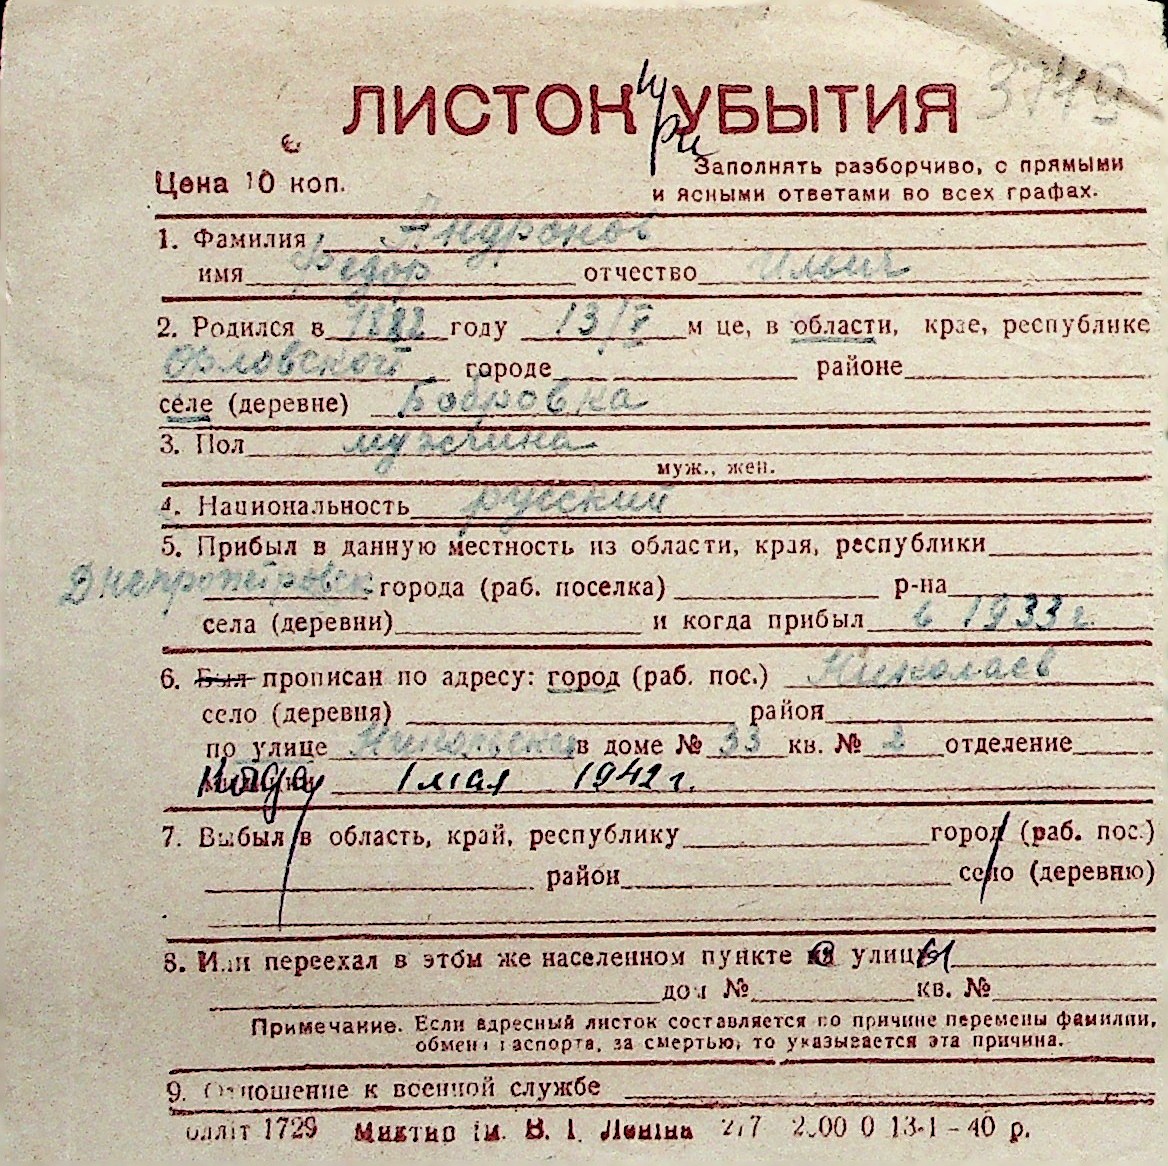 3749
ЛИСТОК УБЫТИЯ
при
Цена 10 коп.
Заполнять разборчиво, с прямыми
и ясными ответами во всех графах.
1. Фамилия Андронов
имя Федор отчество Ильич
2. Родился в 1882 году 13/V м це, в области, крае, республике
Орловской городе районе
селе (деревне) Бобровка
3. Пол мужчина
муж., жен.
4. Национальность русский
5. Прибыл в данную местность из области, края, республики
Днепропетровск города (раб. поселка) р-на
села (деревни) и когда прибыл в 1933 г.
6. Был прописан по адресу: город (раб. пос.) Николаев
село (деревня) район
по улице в доме № 33 кв. № 2 отделение
Когда 1 мая 1942 г.
7. Выбыл в область, край, республику город (раб. пос.)
район село (деревню)
8. Или переехал в этом же населенном пункте с улицы
дом № кв. №
Примечание. Если адресный листок составляется по причине перемены фамилии,
обмен паспорта, за смертью, то указывается эта причина.
9. Отношение к военной службе
блліт 1729 ім. В. І. Леніна 277 13-1-40 р.